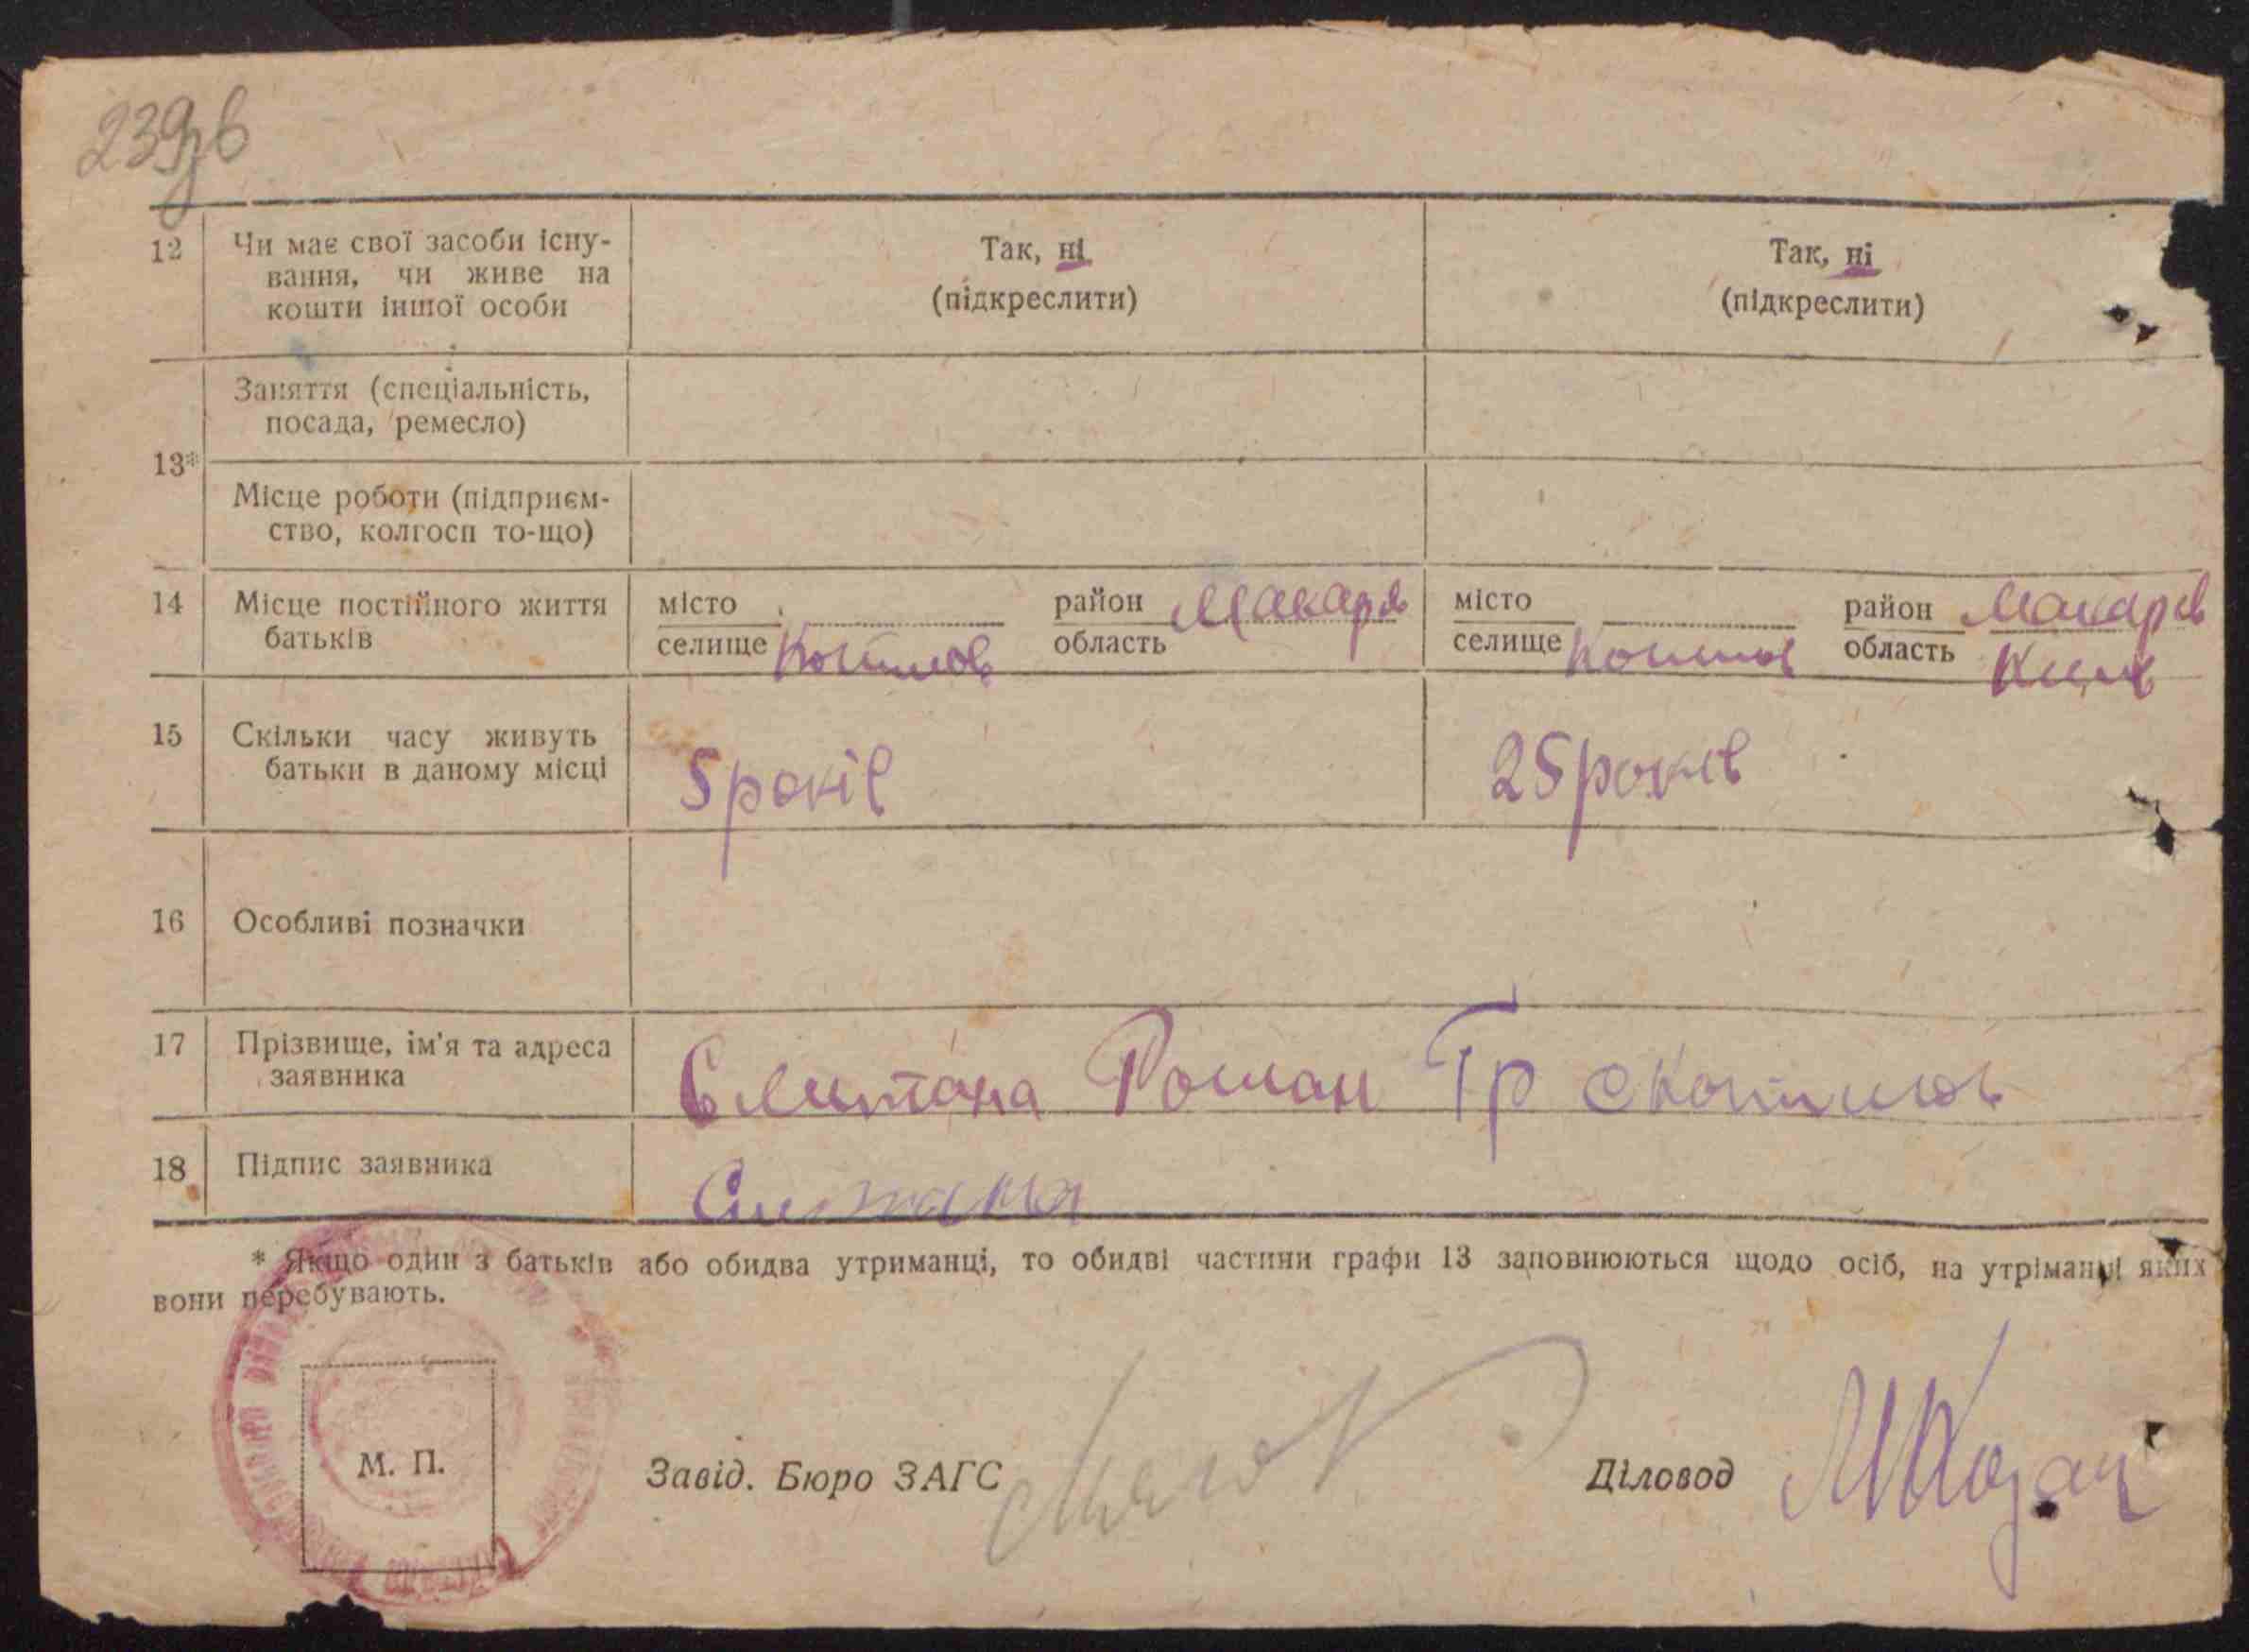 239зв
12 Чи має свої засоби існу-
вання, чи живе на
кошти іншої особи
Так, ні
(підкреслити)
Так, ні
(підкреслити)
13*
Заняття (спеціальність,
посада, ремесло)
Місце роботи (підприєм-
ство, колгосп то-що)
14 Місце постійного життя
батьків
місто
селище
район Макарів
область
місто
селище
район Макарів
область Київ
15 Скільки часу живуть
батьки в даному місці
5 років
25 років
16 Особливі позначки
17 Прізвище, ім'я та адреса
заявника
Сметана Роман Гр
18 Підпис заявника
Сметана
* Якщо один з батьків або обидва утриманці, то обидві частини графи 13 заповнюються щодо осіб, на утріманні яких
вони перебувають.
М. П.
Завід. Бюро ЗАГС
Діловод